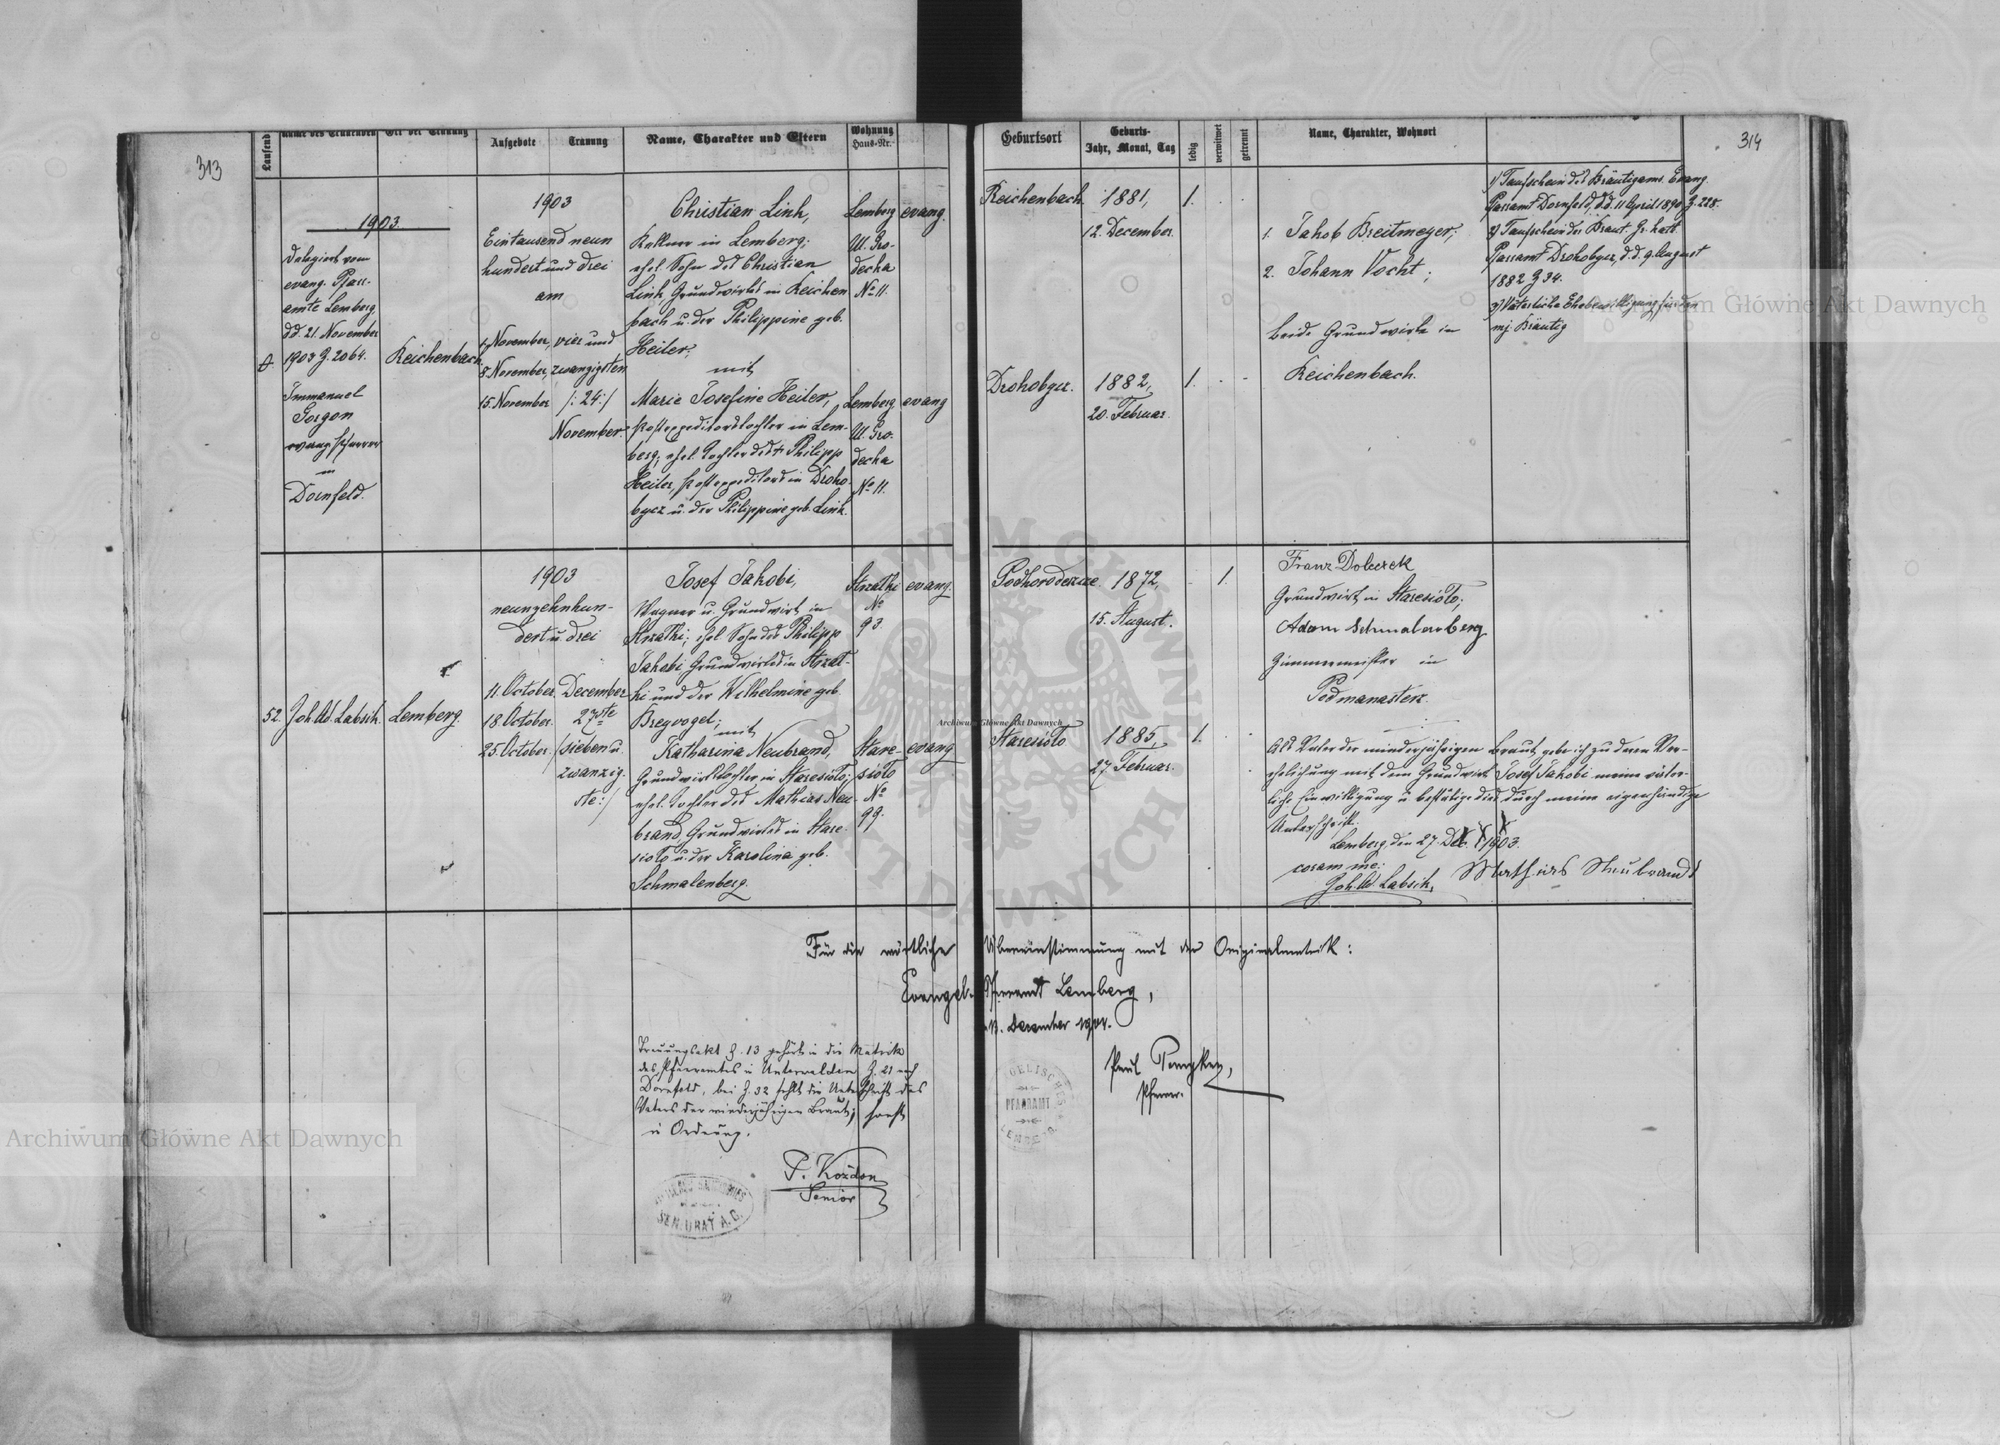 313
314
Laufend
Name des Trauenden
Ort der Trauung
Aufgebote
Trauung
Name, Charakter und Eltern
Wohnung
Haus-Nr.
Geburtsort
Geburts-
Jahr, Monat, Tag
ledig
verwitwet
getrennt
Name, Charakter, Wohnort
1903.
Delegiert vom
evang. Pfarr-
amte Lemberg
dd 21. November
1903 Z. 2064.
Immanuel
Gorgon
evang. Pfarrer
in
Dornfeld.
Reichenbach
1903
Eintausend neun
hundert und drei
am
1. November,
8. November,
15. November
vier und
zwanzigsten
/:24:/
November.
Christian Link,
Kellner in Lemberg;
ehel. Sohn des Christian
Link, Grundwirtes in Reichen
bach u. der Philippine geb.
Heiler.
mit
Marie Josefine Heiler,
Postexpeditorstochter in Lem-
berg; ehel. Tochter des † Philipp
Heiler, Postexpeditors in Droho-
bycz u. der Philippine geb. Link.
Lemberg
Ul. Gro-
decka
No 11.
evang.
Lemberg
Ul. Gro-
decka
No 11.
evang
Reichenbach.
1881,
12. December.
1.
Drohobycz.
1882,
20. Februar.
1.
1. Jakob Breitmeyer;
2. Johann Vocht;
beide Grundwirte in
Reichenbach.
1) Taufschein des Bräutigams Evang.
Pfarramt Dornfeld, d.d. 11 April 1890 Z. 228.
2) Taufschein der Braut. Gr. kath.
Pfarramt Drohobycz, d.d. 9. August
1882 Z 34.
3) Väterliche Ehebewilligung für den
mj. Bräutig
52.
Joh. Ad. Labsik.
Lemberg.
1903
neunzehnhun-
dert u. drei
11. October.
18. October.
25. October.
December
27ste
/sieben u.
zwanzig-
ste:/
Josef Jakobi,
Wagner u. Grundwirt in
Strzałki; ehel. Sohn des Philipp
Jakobi Grundwirtes in Strzał-
ki und der Wilhelmine geb.
Breyvogel;
mit
Katharina Neubrand,
Grundwirtstochter in Staresioło;
ehel. Tochter des Mathias Neu
brand, Grundwirtes in Stare-
sioło u. der Karolina geb.
Schmalenberg.
Strzałki
No
93.
evang.
Stare-
sioło
No
99.
evang
Podhorodezcze
1872,
15. August.
1.
Staresioło
1885,
27. Februar.
1.
Franz
Grundwirt in Staresioło;
Adam Schmalenberg
Zimmermeister in
Podmanasterz.
Als Vater der minderjährigen Braut gebe ich zu deren Ver-
ehelichung mit dem Grundwirt Josef Jakobi meine väter-
liche Einwilligung u. bestätige dies durch meine eigenhändige
Unterschrift.
Lemberg, den 27. Dez. 1903.
coram me:
Joh. Ad. Labsik.
Mathias Neubrand
Für die wörtliche Übereinstimmung mit der Originalmatrik:
Evangel. Pfarramt Lemberg,
13. Dezember
Paul
Pfarrer.
Trauungsakt Z. 13 gehört in die Matrik
des Pfarramtes in Unterwalden, Z. 21 nach
Dornfeld, bei Z. 32 fehlt die Unterschrift des
Vaters der minderjährigen Braut; sonst
in Ordnung.
P. Kozdon
Senior
SENIORAT A. C.
PFARRAMT
Archiwum Główne Akt Dawnych
Archiwum Główne Akt Dawnych
Archiwum Główne Akt Dawnych